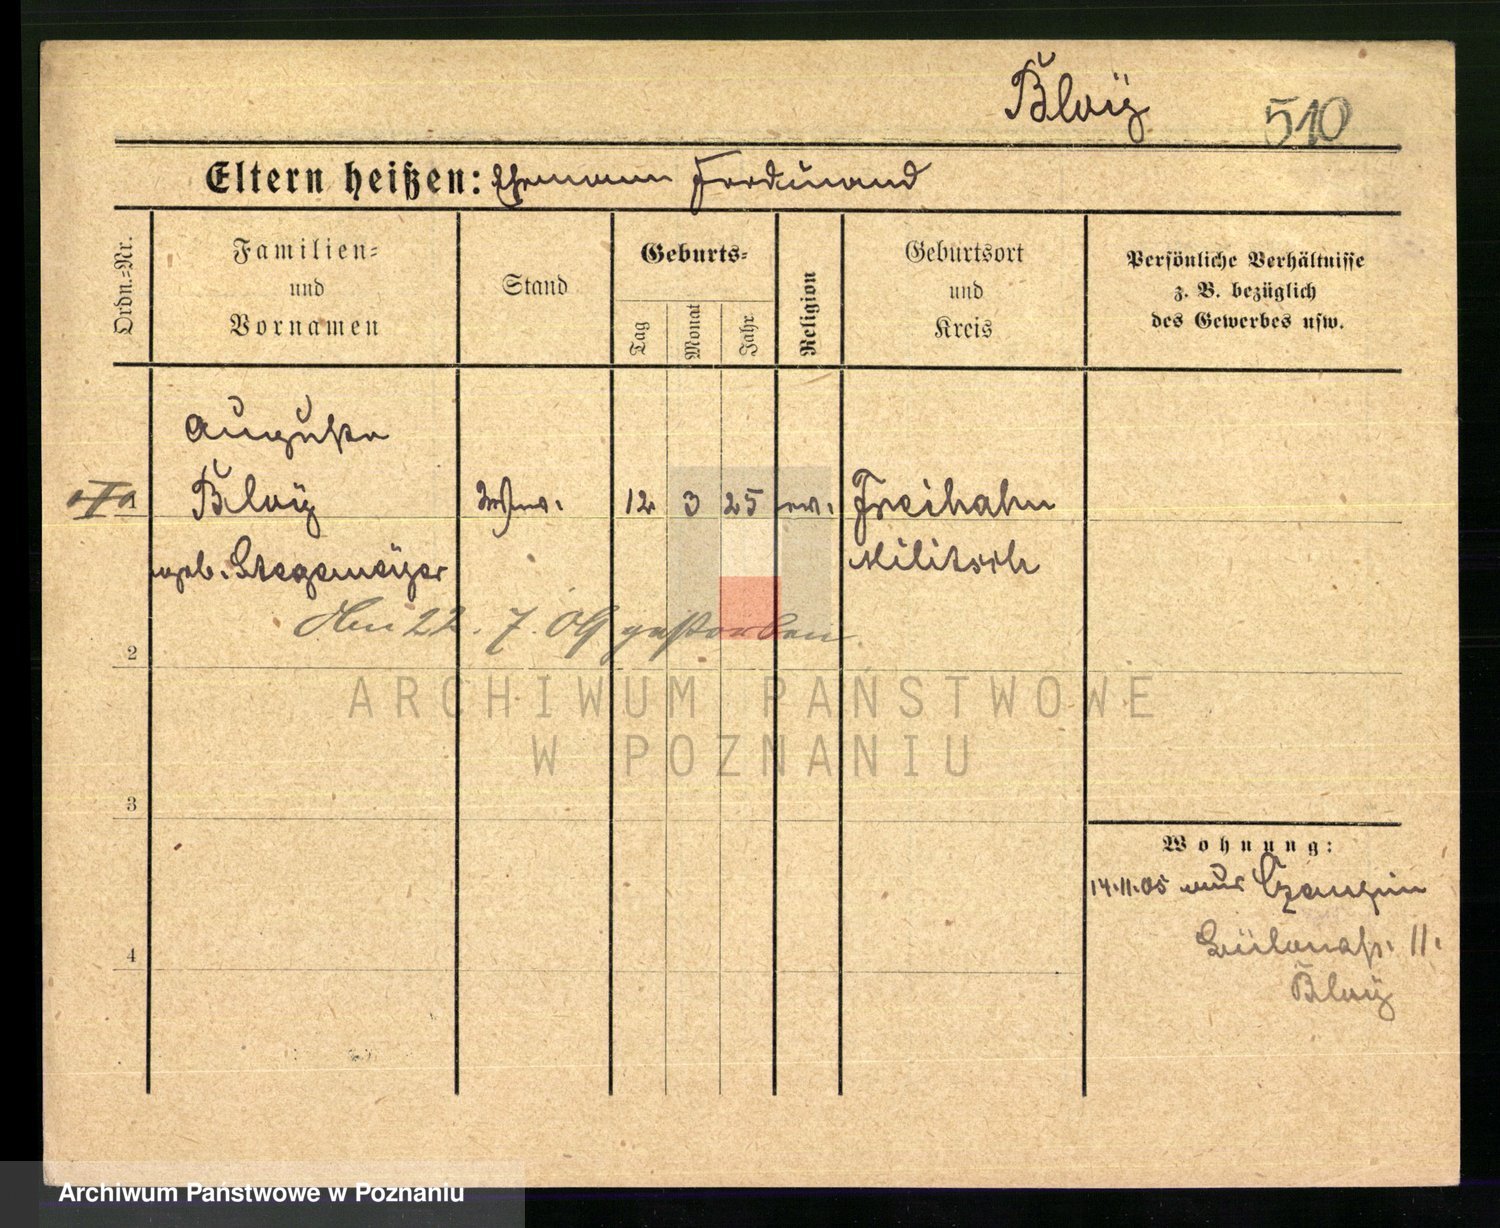 Bloÿ 510
Eltern heißen: Ehemann Ferdinand
Ordn.=Nr.
Familien=
und
Vornamen
Stand
Geburts=
Tag
Monat
Jahr
Religion
Geburtsort
und
Kreis
Persönliche Verhältnisse
z. B. bezüglich
des Gewerbes usw.
Auguste
1 Bloÿ Wwe. 12 3 25 ev. Freihahn
geb. Stegemeÿer Militsch
Am 22. 7. 09 gestorben
2
ARCHIWUM PAŃSTWOWE
W POZNANIU
3
Wohnung:
14.11.05 aus Czempin
4
11.
Bloÿ
Archiwum Państwowe w Poznaniu